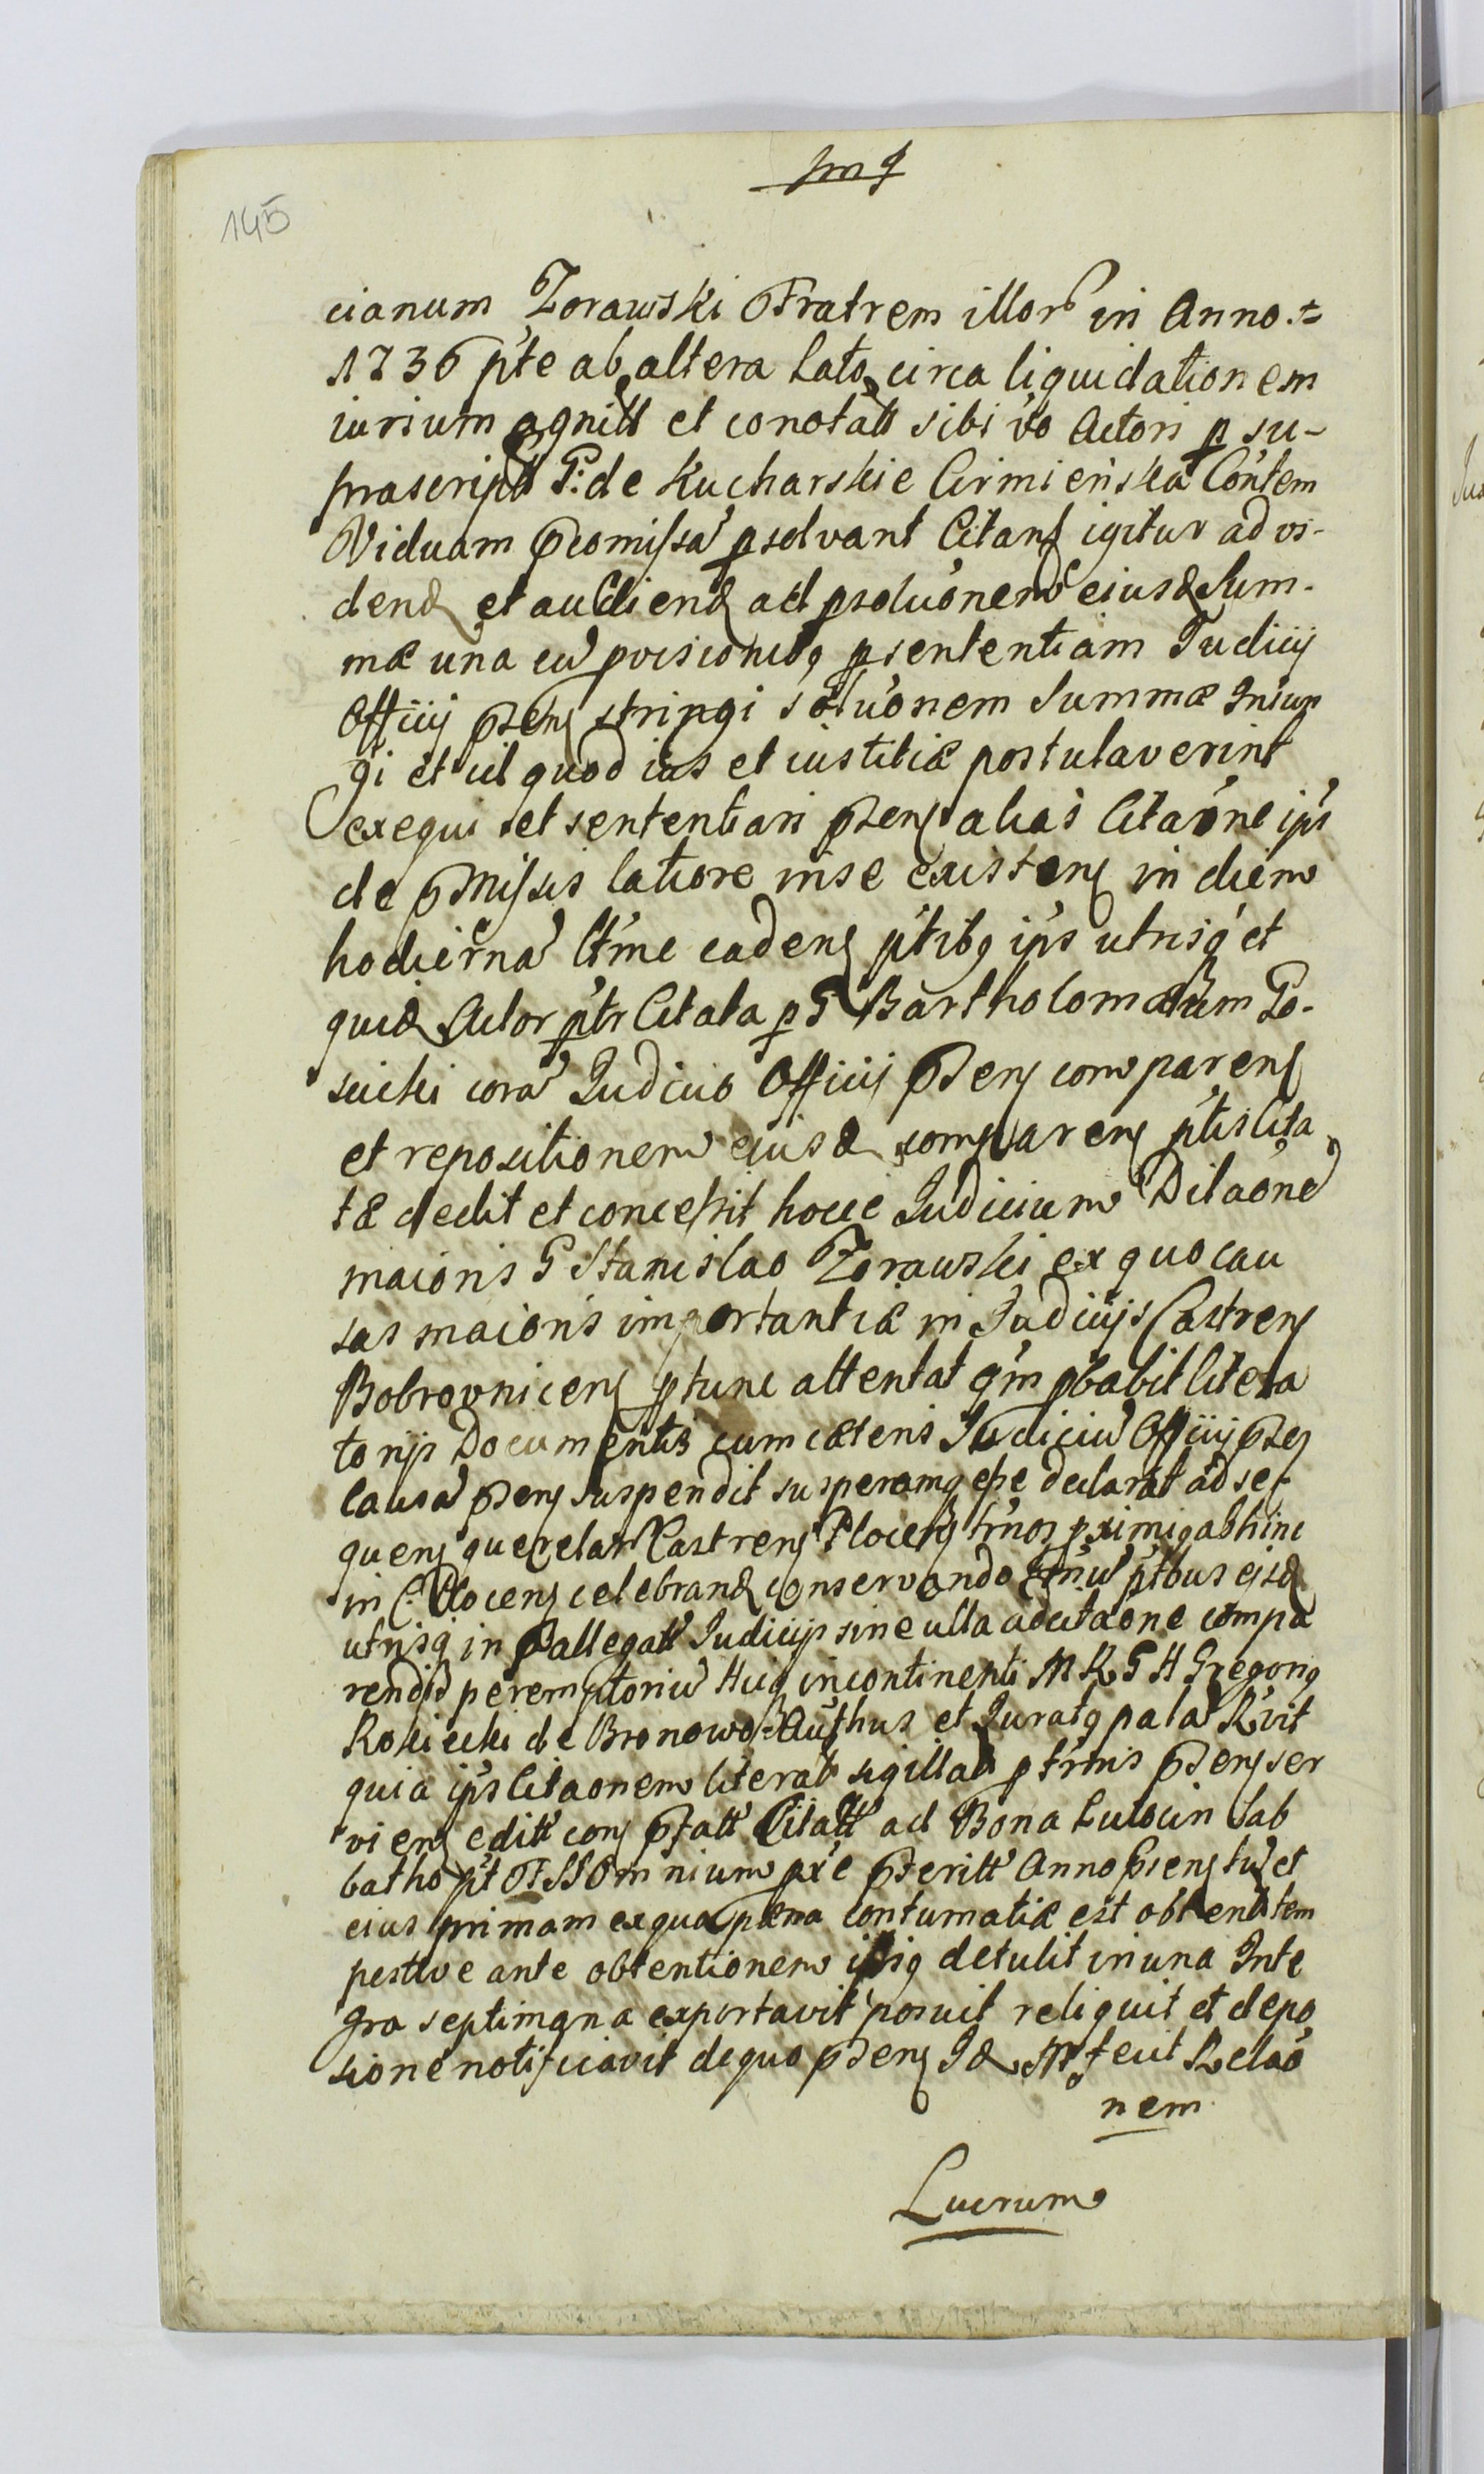 145
cianum Zorawski Fratrem illor in Anno
1736 pte ab altera lato circa liquidationem
iurium agnitt et conotatt sibi vo Actori p su-
prascript G: de Kucharskie Cirmienska Contem
Viduam promissa psolvant Citans igitur ad vi-
dend et audiend ad psoluonem eiusd Sum-
mæ una cu provisionibq p sententiam Judicij
Officij Psens stringi soluonem Summæ Iniun
gi et id quod ius et iustitiæ postulaverint
exequi et sententiari Psens alias Citaone ips
de pmissis latiore in se existens in diem
hodierna ltme cadens ptibq ips utrisq et
quid Actor ptr Citata p G Bartholomæum Go-
sicki cora Judicio Officij Psens comparens
et repositionem eiusd comparens ptis Cita
tæ dedit et concessit hocce Judicium Dilaone
maioris G Stanislao Zorawski ex quo cau
sas maioris importantiæ in Judicijs Castrens
Bobrovnicens ptunc attentat qm pbabit litera
torijs Documentis cum cæteris Judiciu Officij Psens
causa Psens suspendit suspensamq esse declarat ad se-
quens querelar Castrens Plocens tmos pximiq abhinc
in C. Plocens celebrand conservando tmu ptbus eisd
utrisq in Pallegatt Judicijs sine ulla adcitaone compa
rendi peremptoriu Huiq incontinenti M R G H Gregoriq
Rokicki de Bronowo Authus et Juratq pala Rvit
quia ips Citaonem literat sigillat ptmis Psens ser
viens editt cons Pfatt Citatt ad Bona Lutocin Sab
batho pt F SS Omnium pxe Pteritt Anno Psens
eius primam ex qua pæna contumatiæ est obtent tem
pestive ante obtentionem ipsiq detulit in una Inte
gra septimana exportavit posuit reliquit et depo
sione notificavit de quo Psens Id M fecit Relao
nem
Lucrum